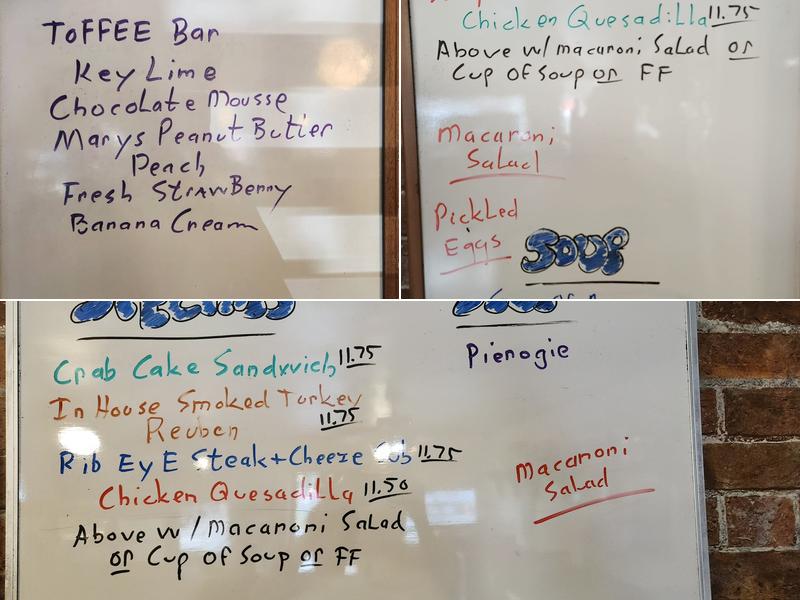 ToFFEE Bar
Key Lime
Chocolate Mousse
Marys Peanut Butter
Peach
Fresh StrawBerry
Banana Cream
Chicken Quesadilla 11.75
Above w/ macaroni Salad or
Cup of Soup or FF
Macaroni
Salad
Pickled
Eggs
SOUP
Crab Cake Sandwich 11.75
In House Smoked Turkey
Reuben 11.75
Rib EyE Steak + Cheeze Sub 11.75
Chicken Quesadilla 11.50
Above w/ Macaroni Salad
or Cup of Soup or FF
Pierogie
Macaroni
Salad